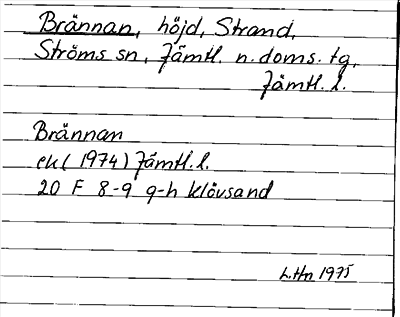 Brännan, höjd, Strand,
Ströms sn, Jämtl. n. doms. tg,
Jämtl. l.
Brännan
ek (1974) Jämtl. l.
20 F 8-9 g-h Klövsand
L.Hn 1975